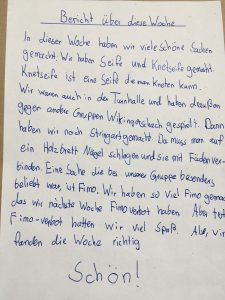 Bericht über diese Woche
In dieser Woche haben wir viele schöne Sachen
gemacht. Wir haben Seife und Knetseife gemacht.
Knetseife ist eine Seife die man kneten kann.
Wir waren auch in der Turnhalle und haben draußen
gegen andre Gruppen Wikingerschach gespielt. Dann
haben wir noch Stringart gemacht. Da muss man auf
ein Holzbrett Nägel schlagen und sie mit Fäden ver-
binden. Eine Sache die bei unserer Gruppe besonders
beliebt war, ist Fimo. Wir haben so viel Fimo gemacht
das wir nächste Woche Fimoverbot haben. Aber trotz
Fimo-verbot hatten wir viel Spaß. Also, wir
fanden die Woche richtig
Schön!